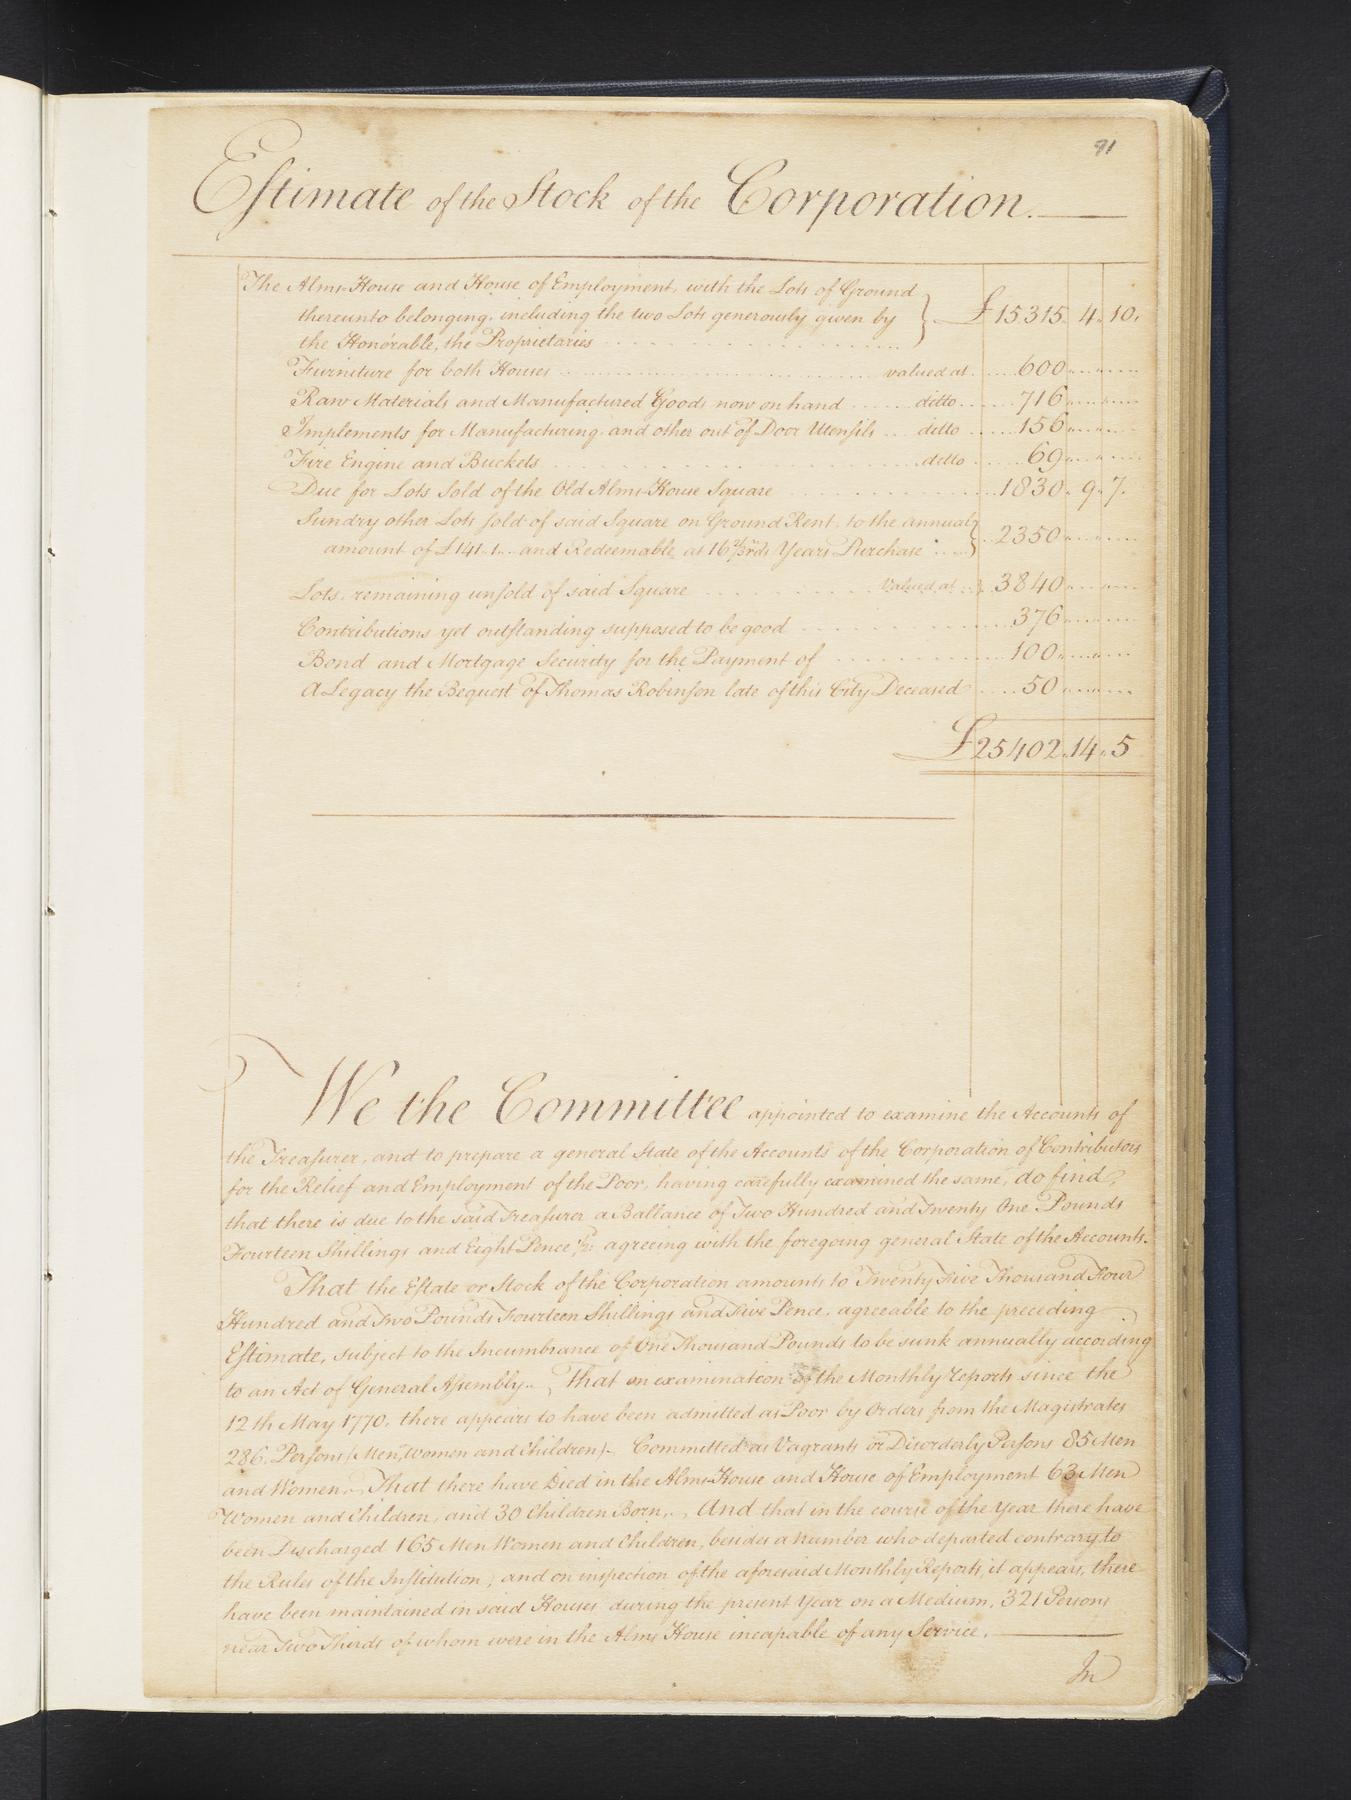 91
Estimate of the Stock of the Corporation.
The Alms-House and House of Employment, with the Lots of Ground
thereunto belonging, including the two Lots generously given by £ 15315. 4. 10.
the Honorable, the Proprietaries
Furniture for both Houses valued at 600
Raw Materials and Manufactured Goods now on hand ditto 716
Implements for Manufacturing and other out of Door Utensils ditto 156
Fire Engine and Buckets ditto 69
Due for Lots Sold of the Old Alms-House Square 1830. 9. 7.
Sundry other Lots sold of said Square on Ground Rent, to the annual
amount of £141..1... and Redeemable at 16 2/3rds Years Purchase 2350
Lots remaining unsold of said Square Valued at 3840
Contributions yet outstanding supposed to be good 376
Bond and Mortgage Security for the Payment of 100
A Legacy the Bequest of Thomas Robinson late of this City Deceased 50
£25402. 14. 5
We the Committee appointed to examine the Accounts of
the Treasurer, and to prepare a general State of the Accounts of the Corporation of Contributors
for the Relief and Employment of the Poor, having carefully examined the same, do find,
that there is due to the said Treasurer a Ballance of Two Hundred and Twenty One Pounds
Fourteen Shillings and Eight Pence ½: agreeing with the foregoing general State of the Accounts.
That the Estate or Stock of the Corporation amounts to Twenty Five Thousand Four
Hundred and Two Pounds Fourteen Shillings and Five Pence, agreeable to the preceding
Estimate, subject to the Incumbrance of One Thousand Pounds to be sunk annually according
to an Act of General Assembly.. That on examination of the Monthly reports since the
12th May 1770, there appears to have been admitted as Poor by Orders from the Magistrates
286, Persons (Men, Women and Children). Committed as Vagrants or Disorderly Persons 85 Men
and Women. That there have Died in the Alms-House and House of Employment 63 Men
Women and Children, and 30 Children Born, And that in the course of the Year there have
been Discharged 165 Men Women and Children, besides a number who departed contrary to
the Rules of the Institution; and on inspection of the aforesaid Monthly Reports, it appears, there
have been maintained in said Houses during the present Year on a Medium, 321 Persons
near Two Thirds of whom were in the Alms House incapable of any Service.
In